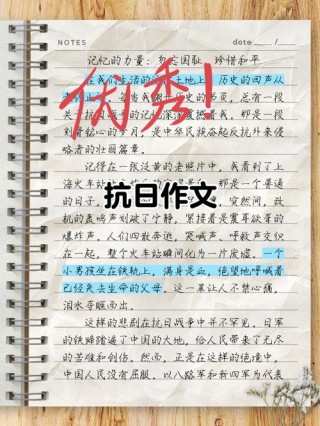 NOTES
date __/__
记忆的力量：勿忘国耻 珍惜和平
在我们生活的 土地上 历史的回声从
每当我翻 书页，总有一段
关于抗 的记忆深深 着我。那是一段
刻骨铭心的岁月，是中华民族奋起反抗斗来侵
略者的壮丽篇章。
优秀!
记得在一张泛黄的老照片中，我看到了上
海火车站 那是一个普通
的日子， 突然间，敌
机的轰鸣声划破了宁静，紧接着是震耳欲聋的
抗日作文
爆炸声。人们四散奔逃，哭喊声、呼救声交织
在一起，整个火车站瞬间化为一片废墟。一个
小男孩坐在铁轨上，满身是血，绝望地呼喊着
已经失去生命的父母。这一幕让人不禁心痛，
泪水夺眶而出。
这样的悲剧在抗日战争中并不罕见。日军
的铁蹄踏遍了中国的大地，给人民带来了无尽
的苦难和创伤。然而，正是在这样的绝境中，
中国人民没有屈服。以八路军和新四军为代表